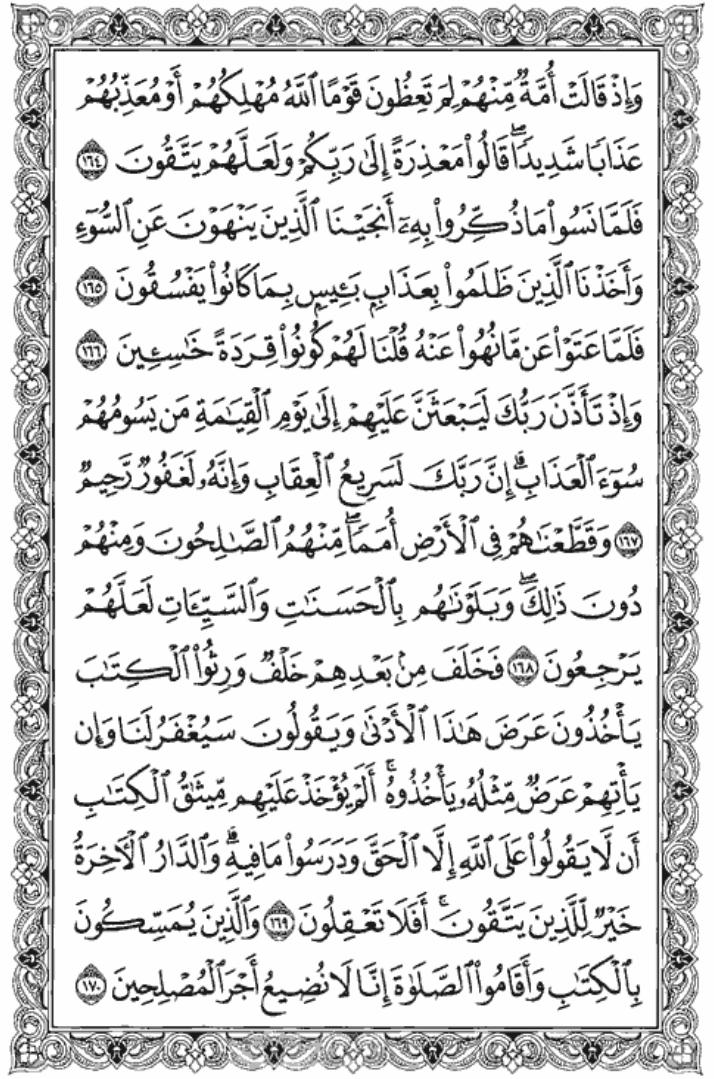 وَإِذۡ قَالَتۡ أُمَّةٞ مِّنۡهُمۡ لِمَ تَعِظُونَ قَوۡمًا ٱللَّهُ مُهۡلِكُهُمۡ أَوۡ مُعَذِّبُهُمۡ
عَذَابٗا شَدِيدٗاۖ قَالُواْ مَعۡذِرَةً إِلَىٰ رَبِّكُمۡ وَلَعَلَّهُمۡ يَتَّقُونَ ١٦٤
فَلَمَّا نَسُواْ مَا ذُكِّرُواْ بِهِۦٓ أَنجَيۡنَا ٱلَّذِينَ يَنۡهَوۡنَ عَنِ ٱلسُّوٓءِ
وَأَخَذۡنَا ٱلَّذِينَ ظَلَمُواْ بِعَذَابِۭ بَـِٔيسِۭ بِمَا كَانُواْ يَفۡسُقُونَ ١٦٥
فَلَمَّا عَتَوۡاْ عَن مَّا نُهُواْ عَنۡهُ قُلۡنَا لَهُمۡ كُونُواْ قِرَدَةً خَٰسِـِٔينَ ١٦٦
وَإِذۡ تَأَذَّنَ رَبُّكَ لَيَبۡعَثَنَّ عَلَيۡهِمۡ إِلَىٰ يَوۡمِ ٱلۡقِيَٰمَةِ مَن يَسُومُهُمۡ
سُوٓءَ ٱلۡعَذَابِۗ إِنَّ رَبَّكَ لَسَرِيعُ ٱلۡعِقَابِ وَإِنَّهُۥ لَغَفُورٞ رَّحِيمٞ
١٦٧ وَقَطَّعۡنَٰهُمۡ فِي ٱلۡأَرۡضِ أُمَمٗاۖ مِّنۡهُمُ ٱلصَّٰلِحُونَ وَمِنۡهُمۡ
دُونَ ذَٰلِكَۖ وَبَلَوۡنَٰهُم بِٱلۡحَسَنَٰتِ وَٱلسَّيِّـَٔاتِ لَعَلَّهُمۡ
يَرۡجِعُونَ ١٦٨ فَخَلَفَ مِنۢ بَعۡدِهِمۡ خَلۡفٞ وَرِثُواْ ٱلۡكِتَٰبَ
يَأۡخُذُونَ عَرَضَ هَٰذَا ٱلۡأَدۡنَىٰ وَيَقُولُونَ سَيُغۡفَرُ لَنَا وَإِن
يَأۡتِهِمۡ عَرَضٞ مِّثۡلُهُۥ يَأۡخُذُوهُۚ أَلَمۡ يُؤۡخَذۡ عَلَيۡهِم مِّيثَٰقُ ٱلۡكِتَٰبِ
أَن لَّا يَقُولُواْ عَلَى ٱللَّهِ إِلَّا ٱلۡحَقَّ وَدَرَسُواْ مَا فِيهِۗ وَٱلدَّارُ ٱلۡأٓخِرَةُ
خَيۡرٞ لِّلَّذِينَ يَتَّقُونَۚ أَفَلَا تَعۡقِلُونَ ١٦٩ وَٱلَّذِينَ يُمَسِّكُونَ
بِٱلۡكِتَٰبِ وَأَقَامُواْ ٱلصَّلَوٰةَ إِنَّا لَا نُضِيعُ أَجۡرَ ٱلۡمُصۡلِحِينَ ١٧٠